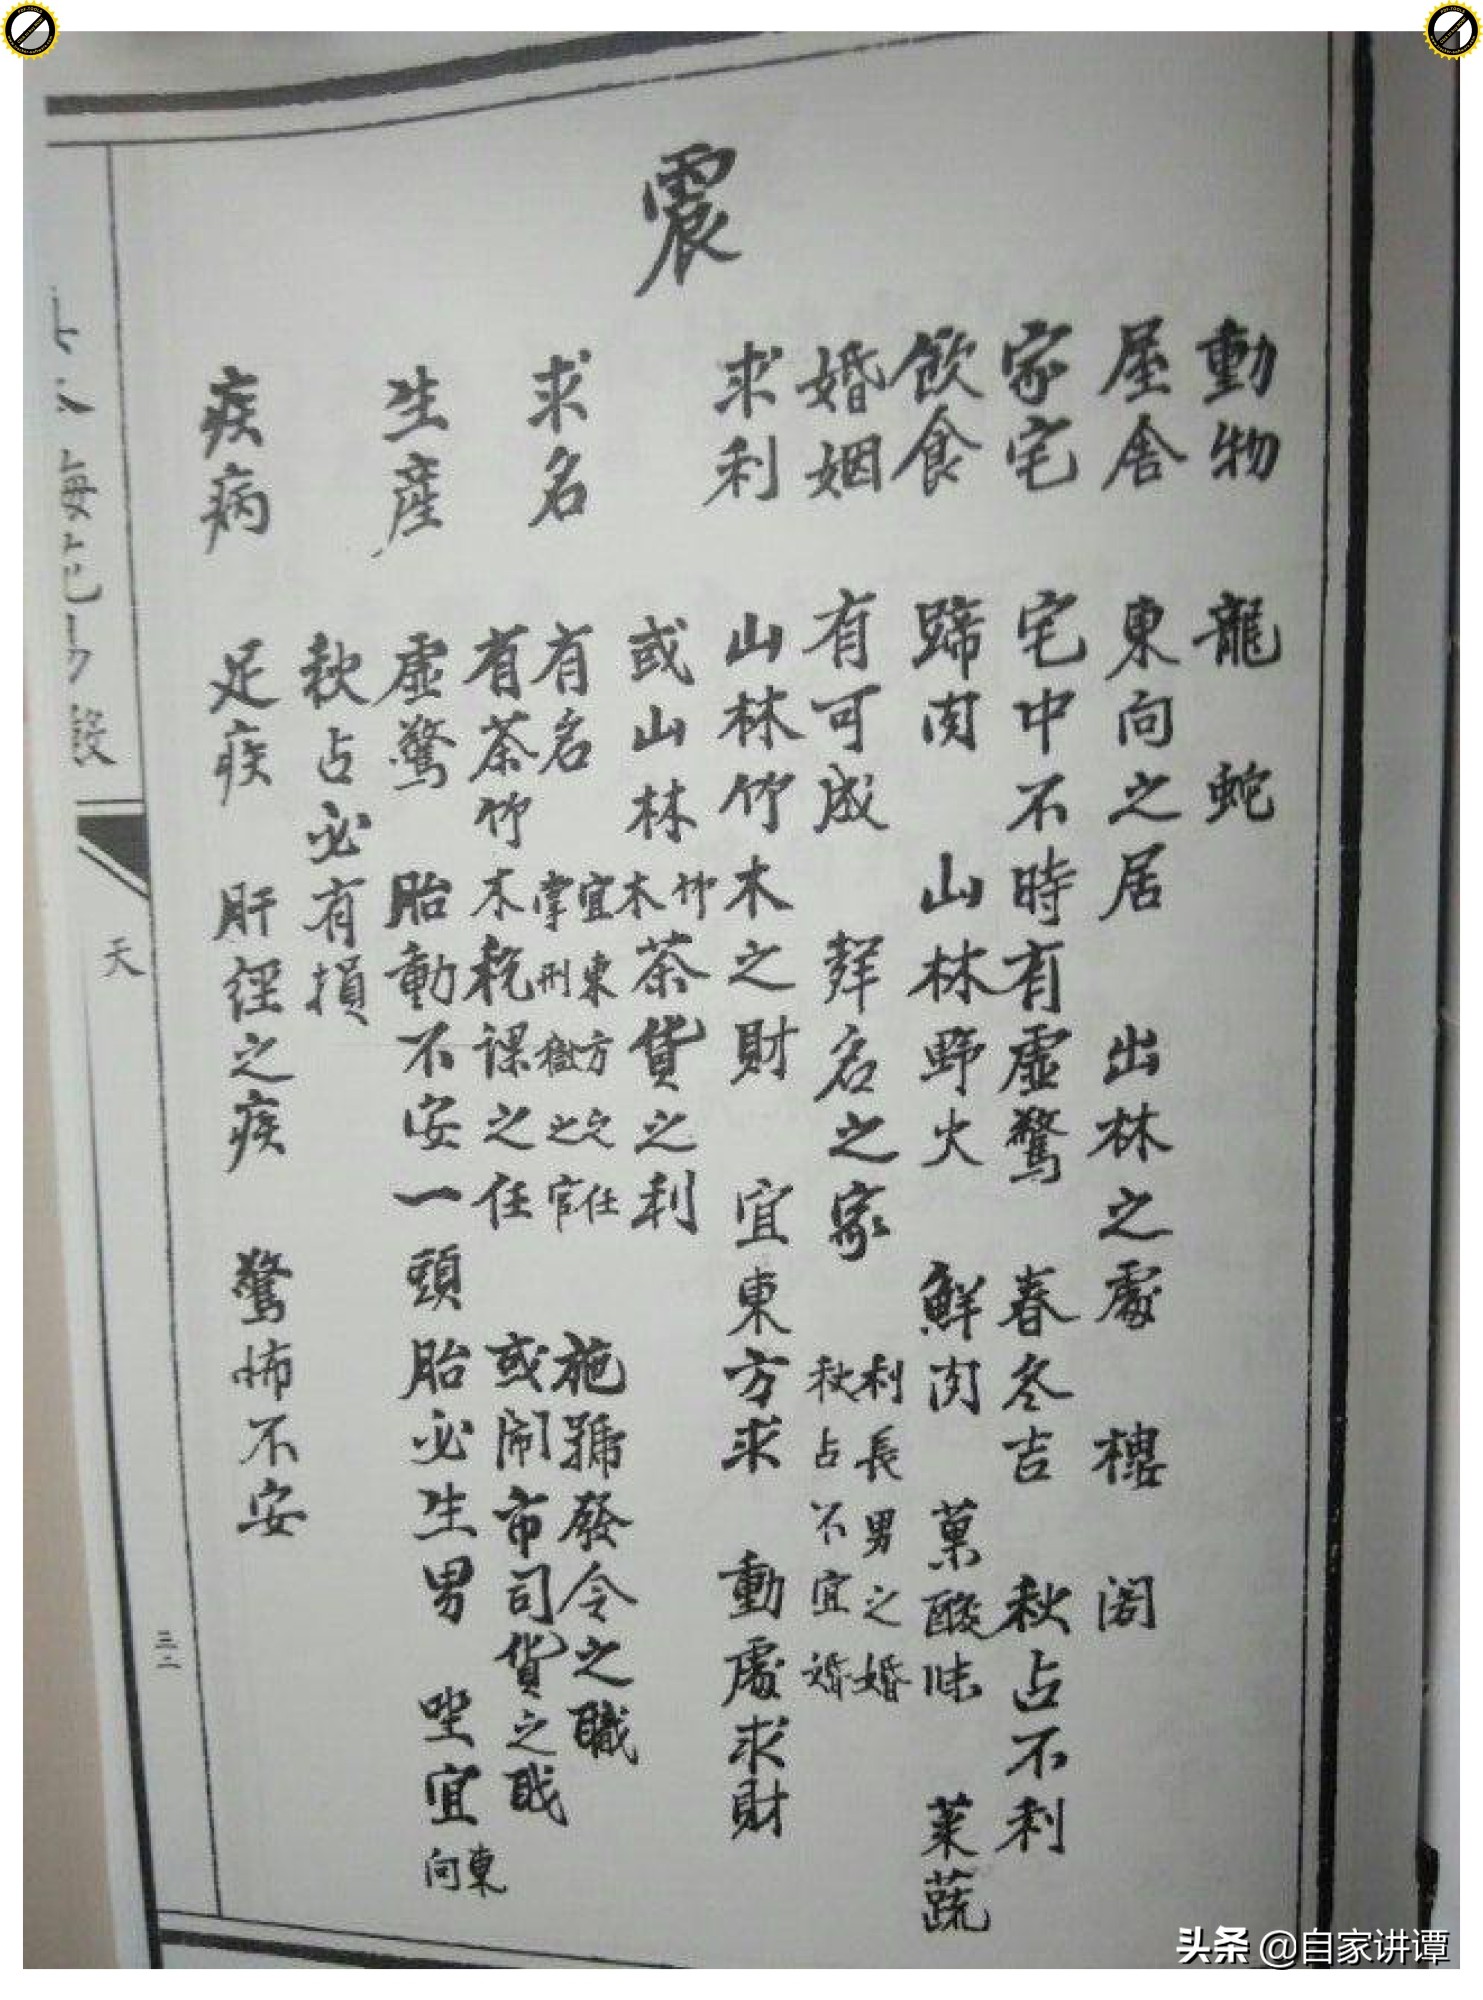 震
動物 龍 蛇
屋舍 東向之居 出林之處 樓 閣
家宅 宅中不時有虛驚 春冬吉 秋占不利
飲食 蹄肉 山林野火 鮮肉 菓酸味 菜蔬
婚姻 有可成 聲名之家 利長男之婚 秋占不宜婚
求利 山林竹木之財 宜東方求 動處求財
或山林竹木茶貨之利
求名 有名 宜東方之任 掌刑獄之官 施號發令之職
有茶竹木稅課之任 或鬧市司貨之職
生產 虛驚 胎動不安 一頭胎必生男 坐宜東向
秋占必有損
疾病 足疾 肝經之疾 驚怖不安
天
三二
头条 @自家讲谭